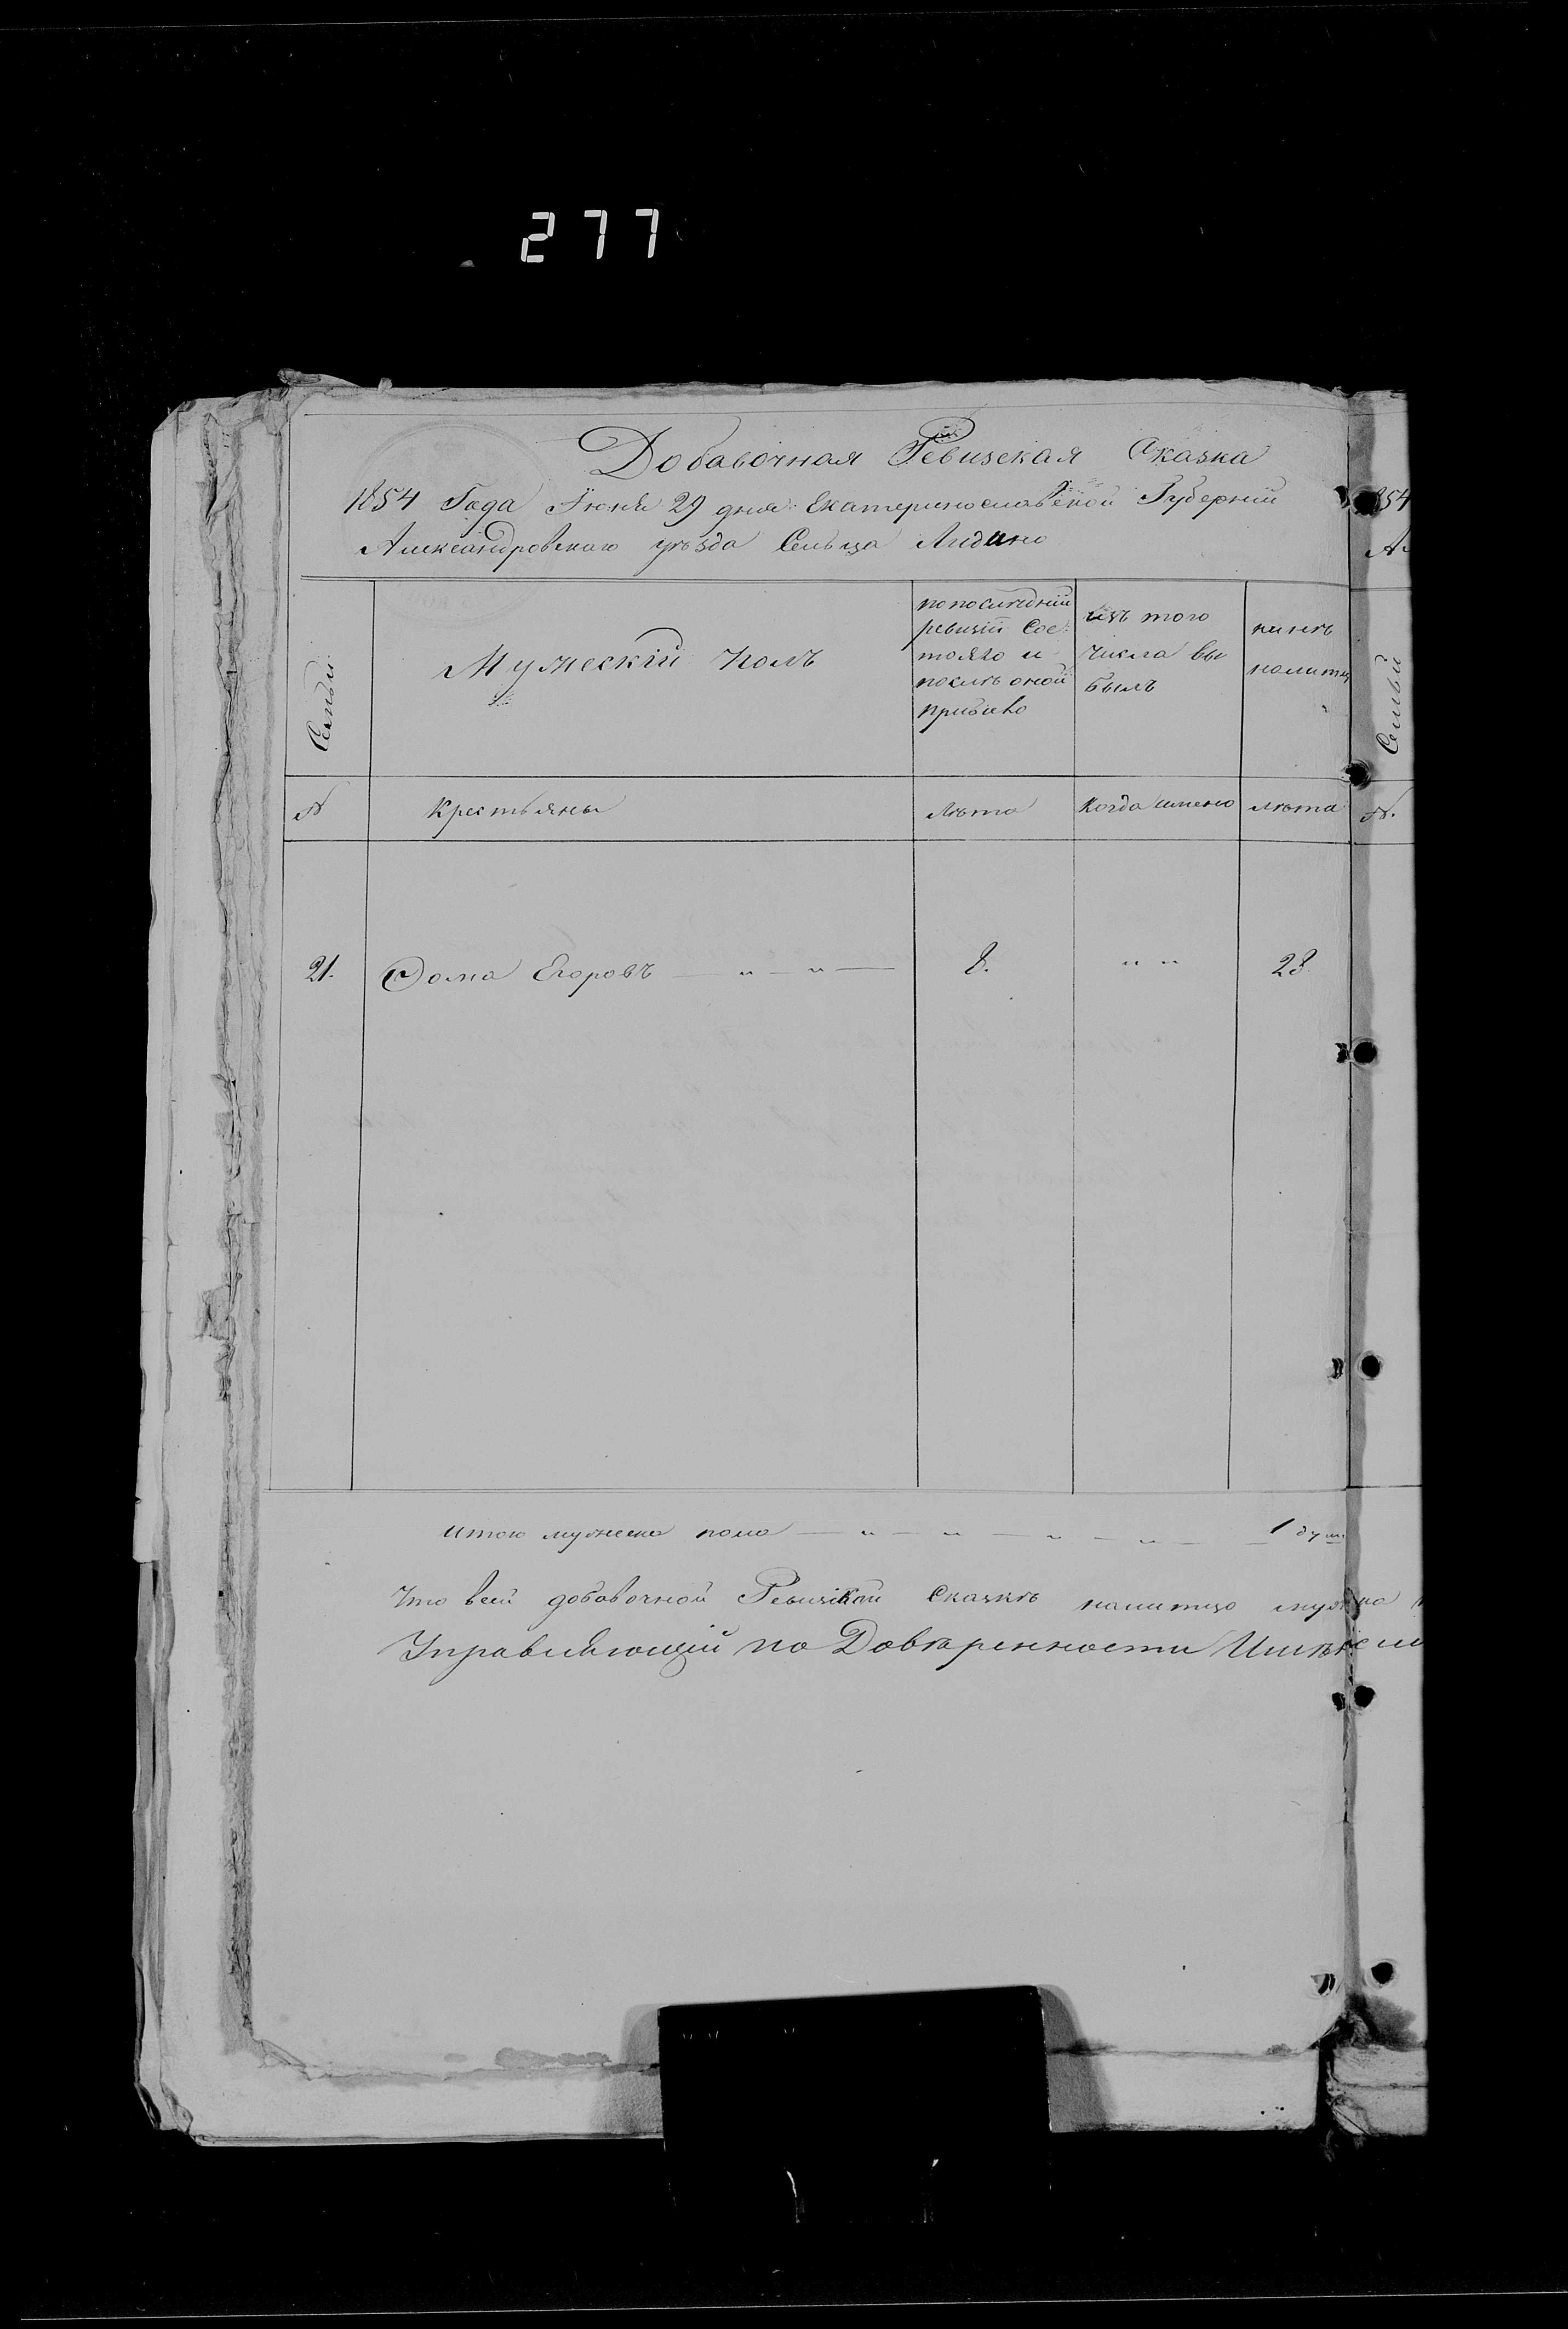 277
Добавочная Ревизская Сказка
1854 Года Июня 29 дня Екатеринославской Губерніи
Александровскаго уѣзда Сельца Лидино
854
Семьи
Мужескій полъ
по последній
ревизіи сос
тояло и
послѣ оной
прибыло
изъ того
числа вы
былъ
нынѣ
налицо
Семьи
№
Крестьяны
лѣта
Когда имено
лѣта
№.
21.
Фома Егоровъ — " — " —
8.
" "
28
Итого мужеска пола — " — " — " — " — 1 душ
Что всей добавочной Ревизкой Сказкѣ налицо
Управляющій по Довѣренности